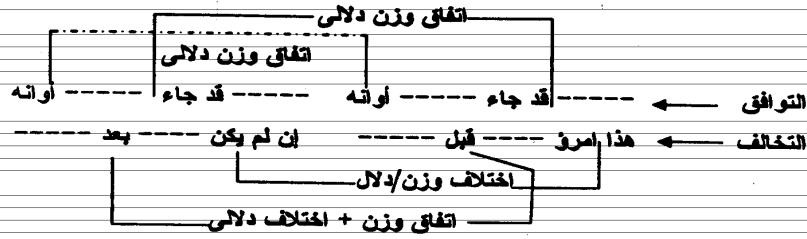 اتفاق وزن دلالى
اتفاق وزن دلالى
التوافق ----- قد جاء ----- أوانه ----- قد جاء ----- أوانه
التخالف هذا امرؤ ---- قبل ----- إن لم يكن ---- بعد -----
اختلاف وزن/دلال
اتفاق وزن + اختلاف دلالى